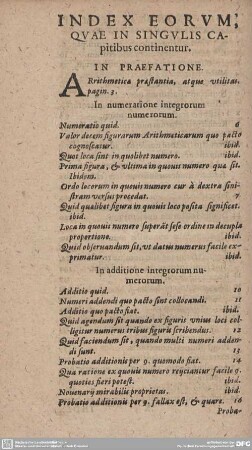 INDEX EORVM,
QVAE IN SINGVLIS CA-
pitibus continentur.
IN PRAEFATIONE.
ARrithmetica præstantia, atque vtilitas.
pagin. 3.
In numeratione integrorum
numerorum.
Numeratio quid. 6
Valor decem figurarum Arithmeticarum quo pacto
cognoscatur. ibid.
Quot loca sint in quolibet numero. ibid.
Prima figura, & vltima in quouis numero qua sit.
Ibidem.
Ordo locorum in quouis numero cur à dextra sini-
stram versus procedat. 7
Quid qualibet figura in quouis loco posita significet.
ibid.
Loca in quouis numero superãt sese ordine in decupla
proportione. ibid.
Quid obseruandum sit, vt datus numerus facile ex-
primatur. ibid.
In additione integrorum nu-
merorum.
Additio quid. 10
Numeri addendi quo pacto sint collocandi. 11
Additio quo pacto fiat. ibid.
Quid agendum sit quando ex figuris vnius loci col-
ligitur numerus tribus figuris scribendus. 12
Quid faciendum sit, quando multi numeri adden-
di sunt. 13
Probatio additionis per 9. quomodo fiat. 14
Qua ratione ex quouis numero reijciantur facile 9.
quoties fieri potest. ibid.
Nouenarij mirabilis proprietas. ibid.
Probatio additionis per 9. fallax est, & quare. 16
Proba-